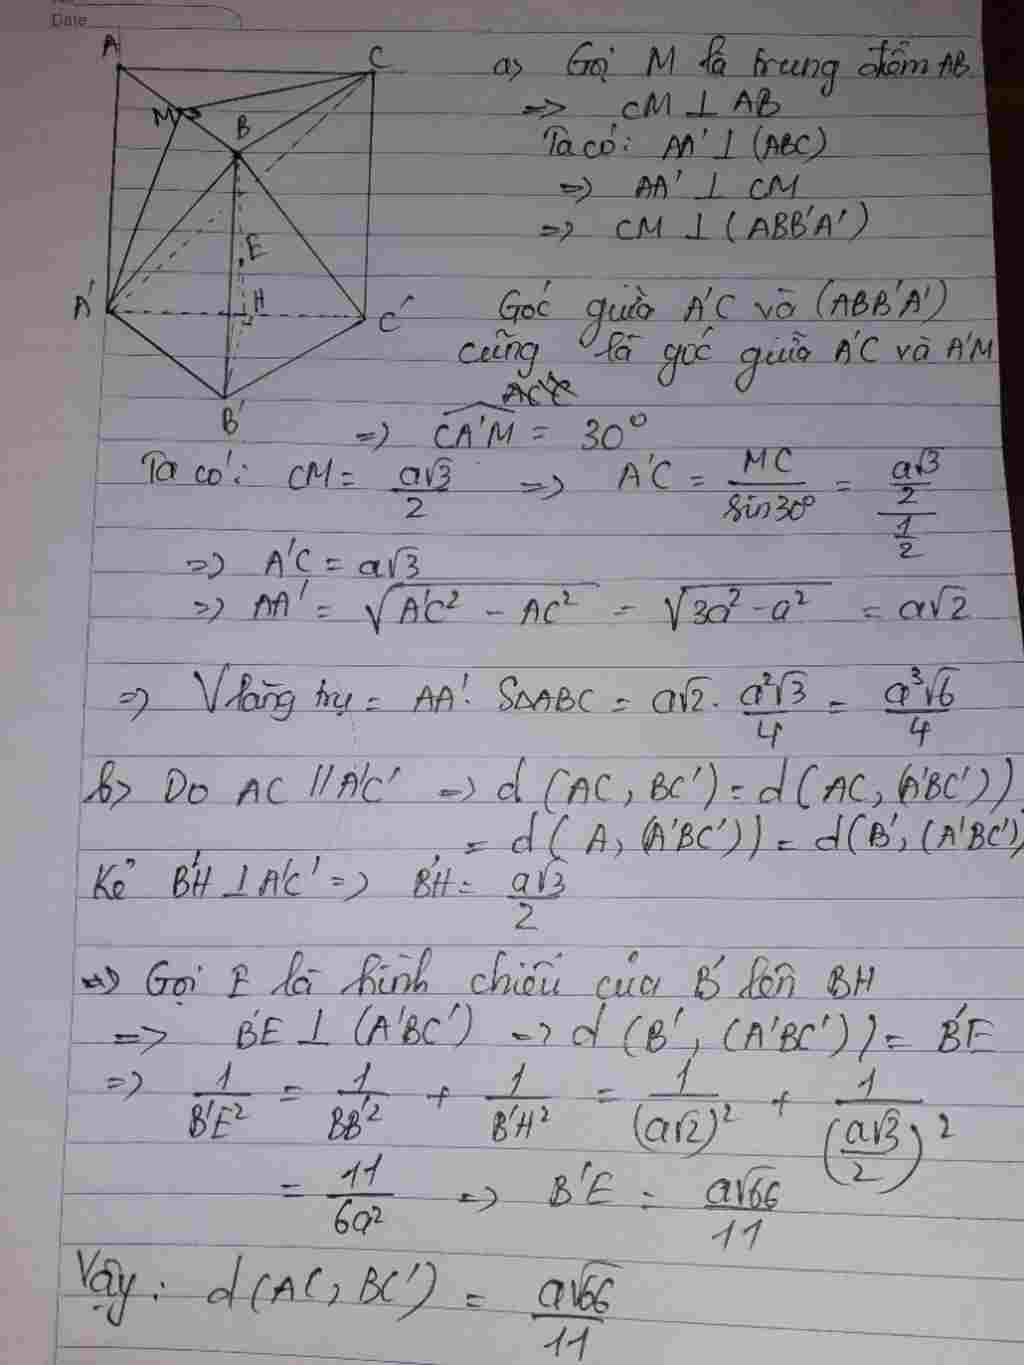 Date
A
C
M
B
E
A'
H
C'
B'
a> Gọi M là trung điểm AB
=> CM ⊥ AB
Ta có: AA' ⊥ (ABC)
=> AA' ⊥ CM
=> CM ⊥ (ABB'A')
Góc giữa A'C và (ABB'A')
cũng là góc giữa A'C và A'M
=> \widehat{CA'M} = 30°
Ta có: CM = \frac{a√3}{2} => A'C = \frac{MC}{sin30°} = \frac{\frac{a√3}{2}}{\frac{1}{2}}
=> A'C = a√3
=> AA' = \sqrt{A'C² - AC²} = \sqrt{3a² - a²} = a√2
=> V lăng trụ = AA'. SΔABC = a√2 . \frac{a²√3}{4} = \frac{a³√6}{4}
b> Do AC // A'C' => d (AC, BC') = d (AC, (A'BC'))
= d (A, (A'BC')) = d(B', (A'BC')
Kẻ B'H ⊥ A'C' => B'H = \frac{a√3}{2}
=> Gọi E là hình chiếu của B' lên BH
=> B'E ⊥ (A'BC') => d (B', (A'BC')) = B'E
=> \frac{1}{B'E²} = \frac{1}{BB'²} + \frac{1}{B'H²} = \frac{1}{(a√2)²} + \frac{1}{(\frac{a√3}{2})²}
= \frac{11}{6a²} => B'E = \frac{a√66}{11}
Vậy: d(AC, BC') = \frac{a√66}{11}